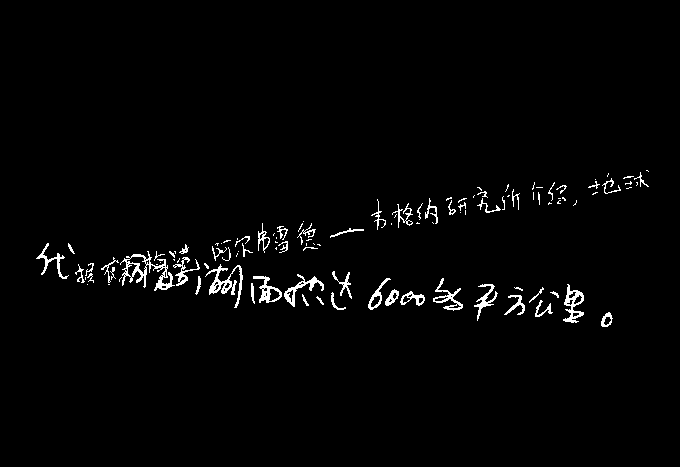 据阿尔弗雷德—韦格纳研究所介绍,地球
代湖面积达6000多平方公里。